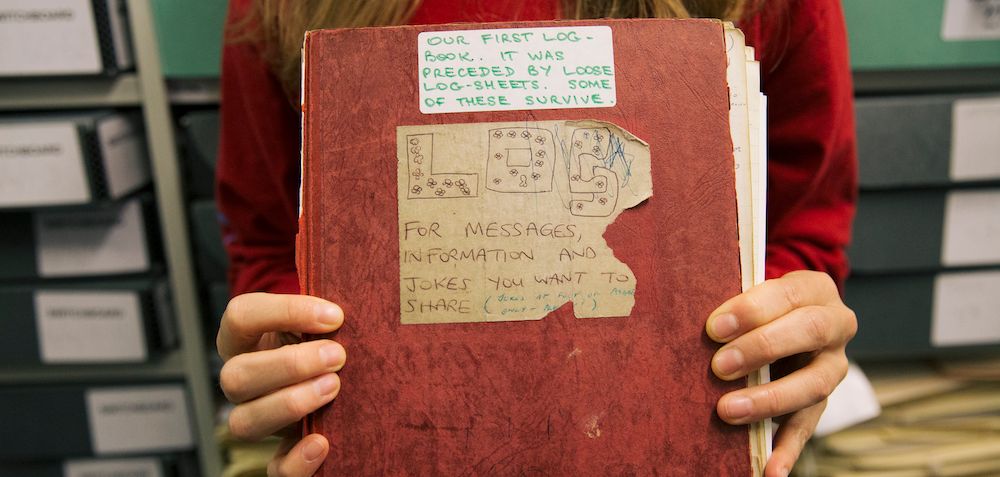 OUR FIRST LOG-
BOOK. IT WAS
PRECEDED BY LOOSE
LOG-SHEETS. SOME
OF THESE SURVIVE.
LOG
FOR MESSAGES,
INFORMATION AND
JOKES YOU WANT TO
SHARE (JOKES AT FOOT OF PAGE
ONLY -
SWITCHBOARD
SWITCHBOARD
SWITCHBOARD